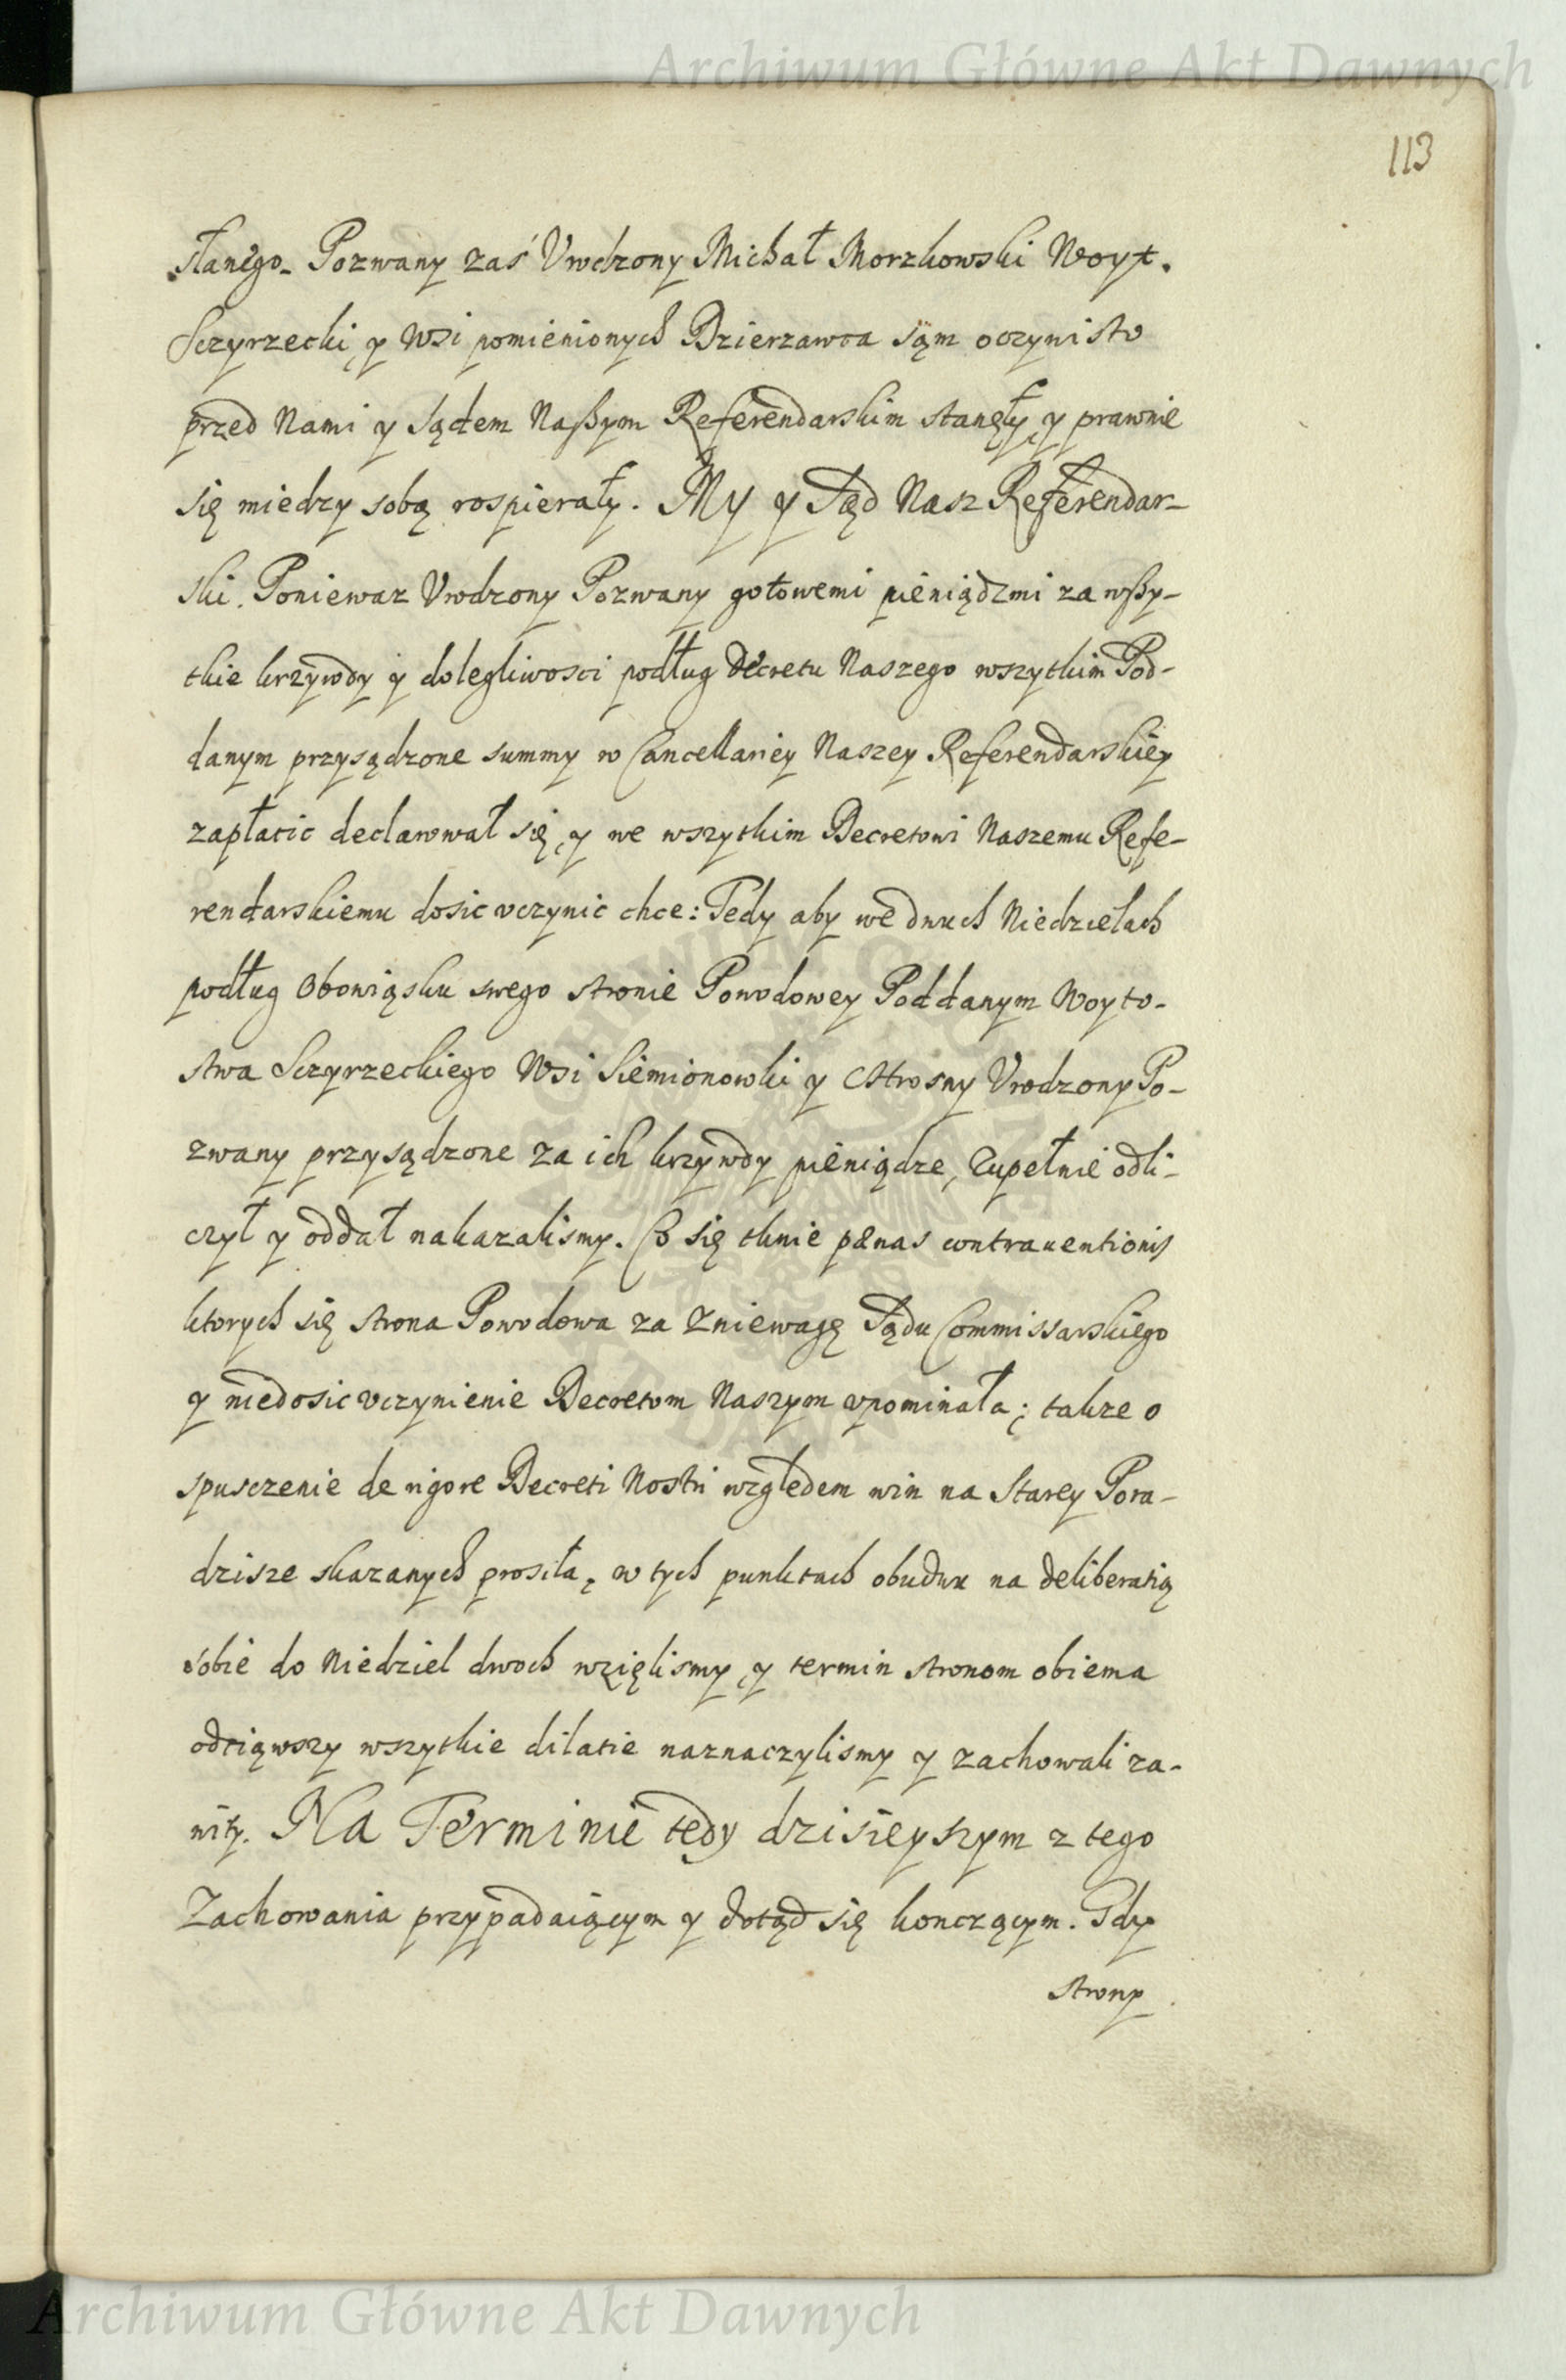 Archiwum Główne Akt Dawnych
113
słanego. Pozwany zaś Vrodzony Michał Morzkowski Woyt.
Sczyrzecki, y Wsi pomienionych Dzierzawca sąm oczywisto
przed Nami y Sądem Naßym Referendarskim stanęły, y prawnie
się miedzy sobą rospierały. My y Sąd Nasz Referendar-
ski. Poniewaz Vrodzony Pozwany gotowemi pieniądzmi za wßy-
tkie krzywdy y dolegliwosci podług Decretu Naszego wszytkim Pod-
danym przysądzone summy w Cancellariey Naszey Referendarskiey
zapłacic declarował się, y we wszytkim Decretowi Naszemu Refe-
rendarskiemu dosic vczynic chce: Tedy aby we dwuch Niedzielach
podług Obowiąsku swego stronie Powodowey Poddanym Woyto-
stwa Sczyrzeckiego Wsi Siemionowki y Ostrosny Vrodzony Po-
zwany przysądzone za ich krzywdy pieniądze, Zupełnie odli-
czył y oddał nakazalismy. Co się tknie pænas contrauentionis
ktorych się strona Powodowa za Zniewagę Sądu Commissarskiego
y niedosic vczynienie Decretom Naszym vpominała; takze o
spusczenie de rigore Decreti Nostri względem win na Starey Pora-
dzisze skazanych prosiła, w tych punktach obudwu na deliberatią
sobie do Niedziel dwoch wzięlismy, y termin stronom obiema
odciąwszy wszytkie dilatie naznaczylismy y zachowali za-
wity. Na Terminie tedy dzisieyszym z tego
Zachowania przypadaiącym y dotąd się konczącym. Gdy
strony
Archiwum Główne Akt Dawnych